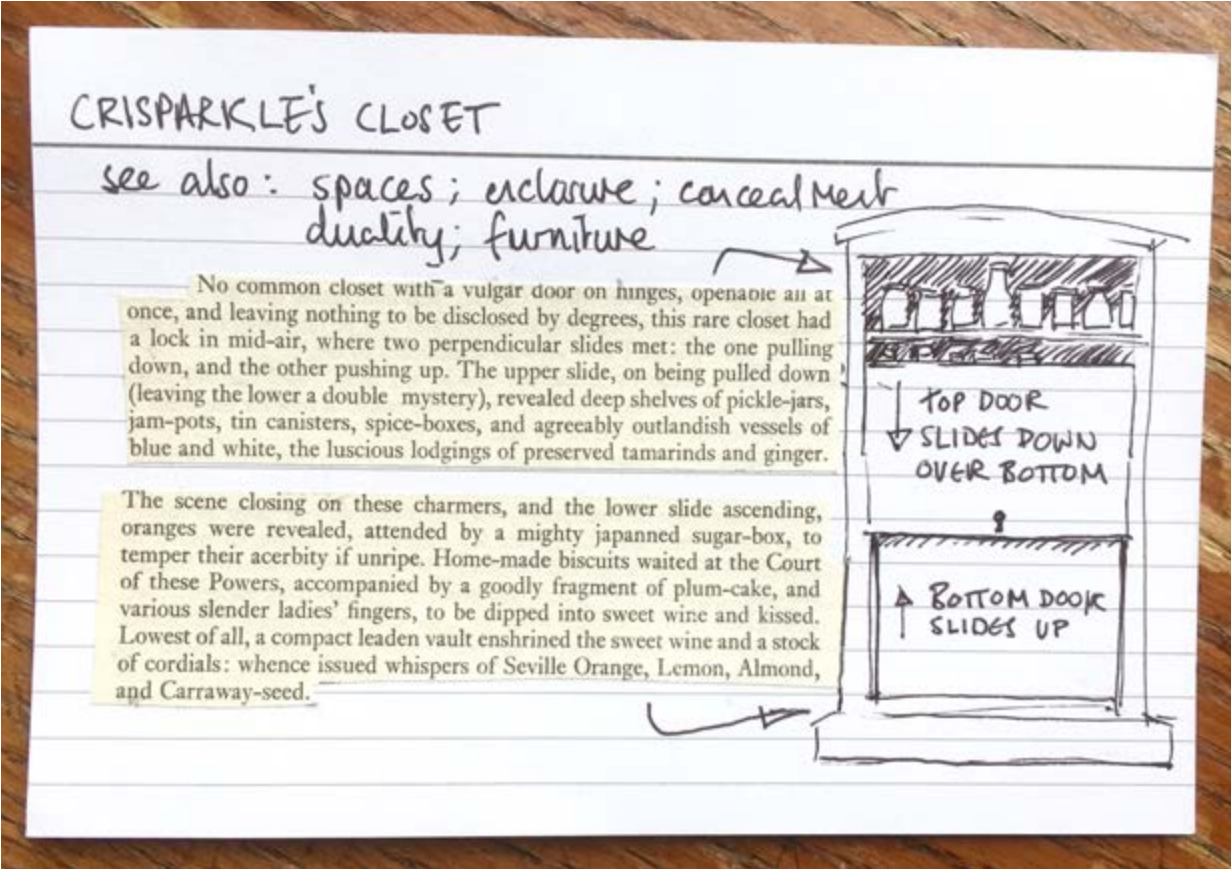 CRISPARKLE'S CLOSET
see also: spaces; enclosure; concealment
duality; furniture
No common closet with a vulgar door on hinges, openable all at
once, and leaving nothing to be disclosed by degrees, this rare closet had
a lock in mid-air, where two perpendicular slides met: the one pulling
down, and the other pushing up. The upper slide, on being pulled down
(leaving the lower a double mystery), revealed deep shelves of pickle-jars,
jam-pots, tin canisters, spice-boxes, and agreeably outlandish vessels of
blue and white, the luscious lodgings of preserved tamarinds and ginger.
The scene closing on these charmers, and the lower slide ascending,
oranges were revealed, attended by a mighty japanned sugar-box, to
temper their acerbity if unripe. Home-made biscuits waited at the Court
of these Powers, accompanied by a goodly fragment of plum-cake, and
various slender ladies' fingers, to be dipped into sweet wine and kissed.
Lowest of all, a compact leaden vault enshrined the sweet wine and a stock
of cordials: whence issued whispers of Seville Orange, Lemon, Almond,
and Carraway-seed.
TOP DOOR
SLIDES DOWN
OVER BOTTOM
BOTTOM DOOR
SLIDES UP